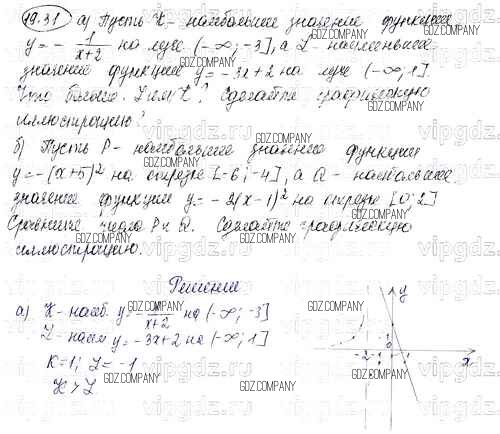 19.31 а) Пусть K - наибольшее значение функции
y = - 1/(x+2) на луче (-∞; -3], а L - наименьшее
значение функции y = - 3x + 2 на луче (-∞; 1].
Что больше: L или K? Сделайте графическую
иллюстрацию?
б) Пусть P - наибольшее значение функции
y = -(x+5)² на отрезке [-6; -4], а Q - наибольшее
значение функции y = - 2(x-1)² на отрезке [0; 2]
Сравните числа P и Q. Сделайте графическую
иллюстрацию.
Решение
а) K - наиб. y = - 1/(x+2) на (-∞; -3]
L - наим y = -3x+2 на (-∞; 1]
K = 1; L = -1
K > L
y
x
-2 -1 0 1
GDZ.COMPANY
vipgdz.ru